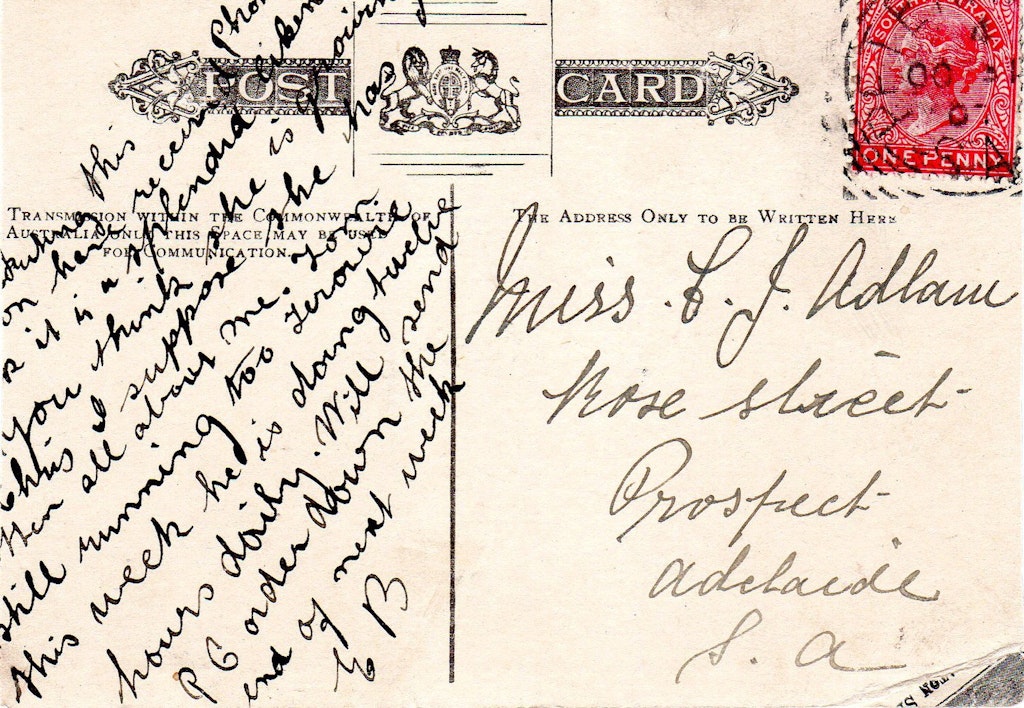 POST CARD
SOUTH AUSTRALIA
ONE PENNY
TRANSMISSION WITHIN THE COMMONWEALTH OF
AUSTRALIA ONLY THIS SPACE MAY BE USED
FOR COMMUNICATION.
THE ADDRESS ONLY TO BE WRITTEN HERE
this
on have received
it is a splendid
you think she is going
Chris I suppose she has
all about me. Tor
still running too Terowie
this week he is doing twelve
hours daily. Will send
P C order down the
end of next week
E B
Miss. E. J. Adlam
Rose street
Prospect
Adelaide
S. a